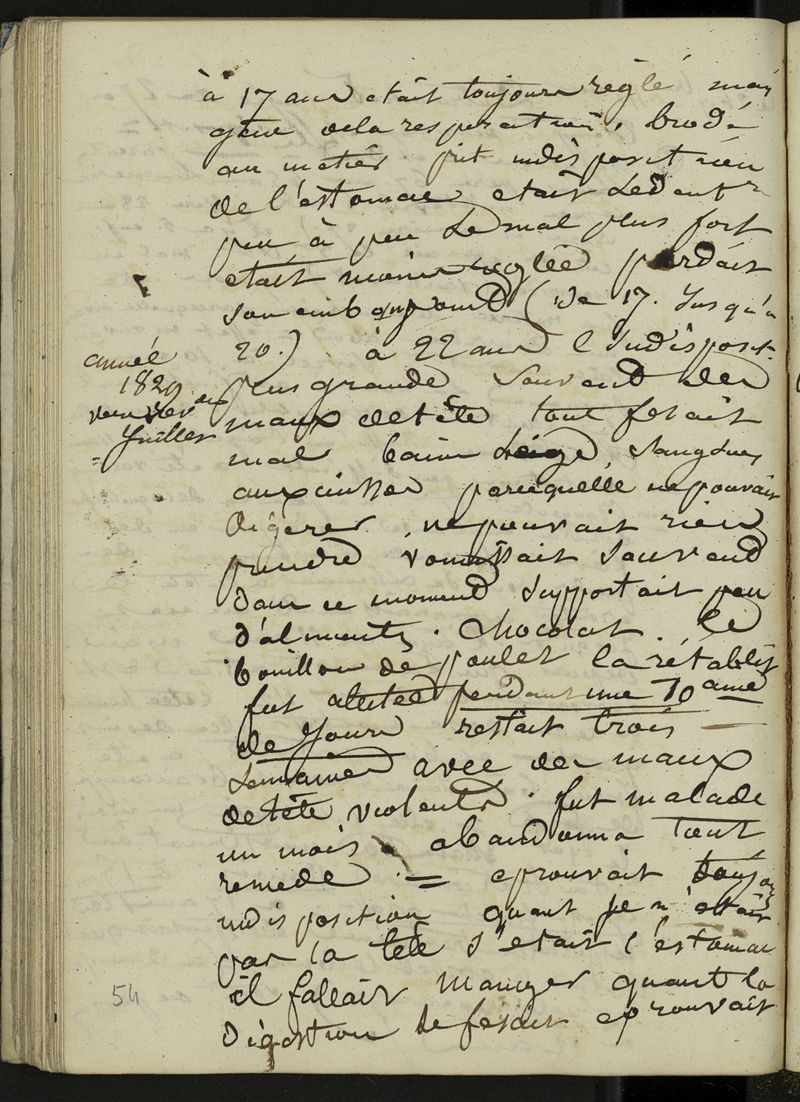 à 17 ans etait toujours réglé mais
gene dela respiration, brodé
au metier prit indisposition
de l'estomac etait sedent
peu à peu le mal plus fort
etait moins reglée perdait
son embonpoint (de 17. Jusqu'a
20.) à 22 ans l'indisposit
année
1829
Juillet
plus grande souvend des
maux detéte tout fesait
mal bain siege, sangsues
aux cuisses parcequelle ne pouvait
digerer, ne pouvait rien
prendre vomissait souvend
dans ce moment supportait peu
d'aliments. Chocolat. le
bouillon de poulet la rétablit
fut alitée pendant une 10aine
de Jours restait trois
semaines avec des maux
detéte violents. fut malade
un mois abandonna tout
remede = eprouvait toujou
indisposition quant se n'etait
pas la téte s'etait l'estomac
il fallait manger quant la
digestion se fesait eprouvait
54